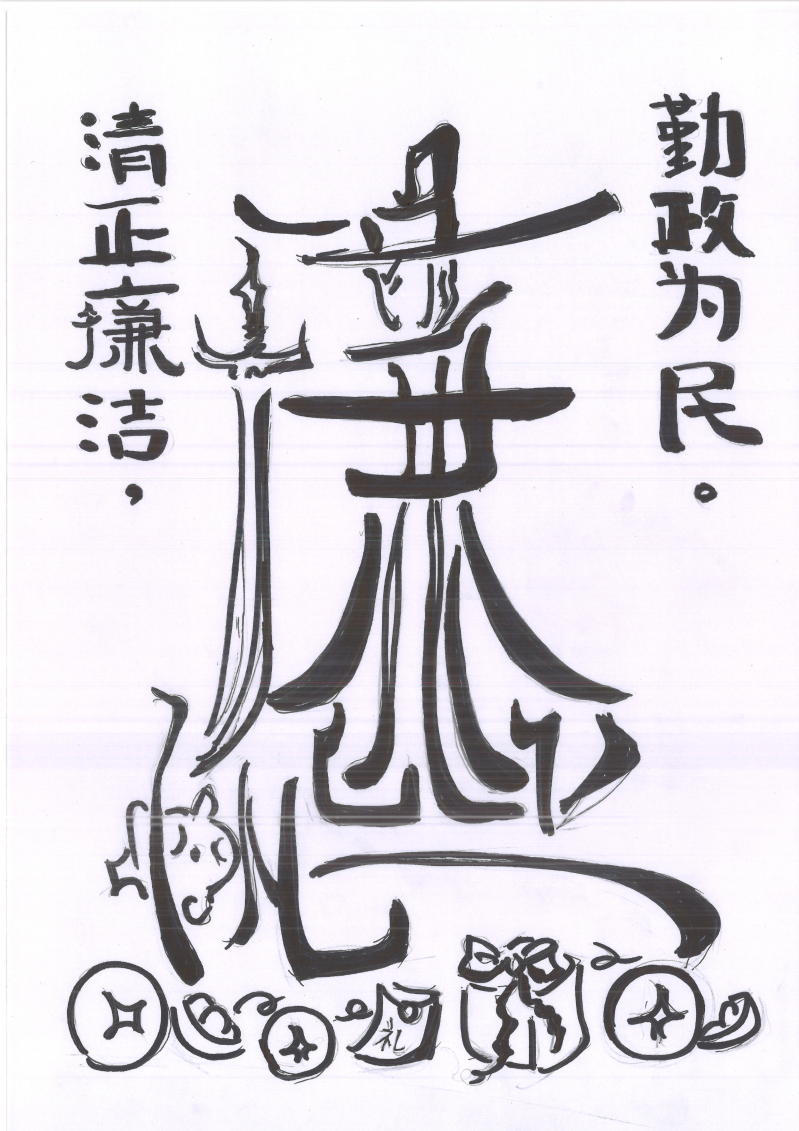 清正廉洁，
勤政为民。
礼